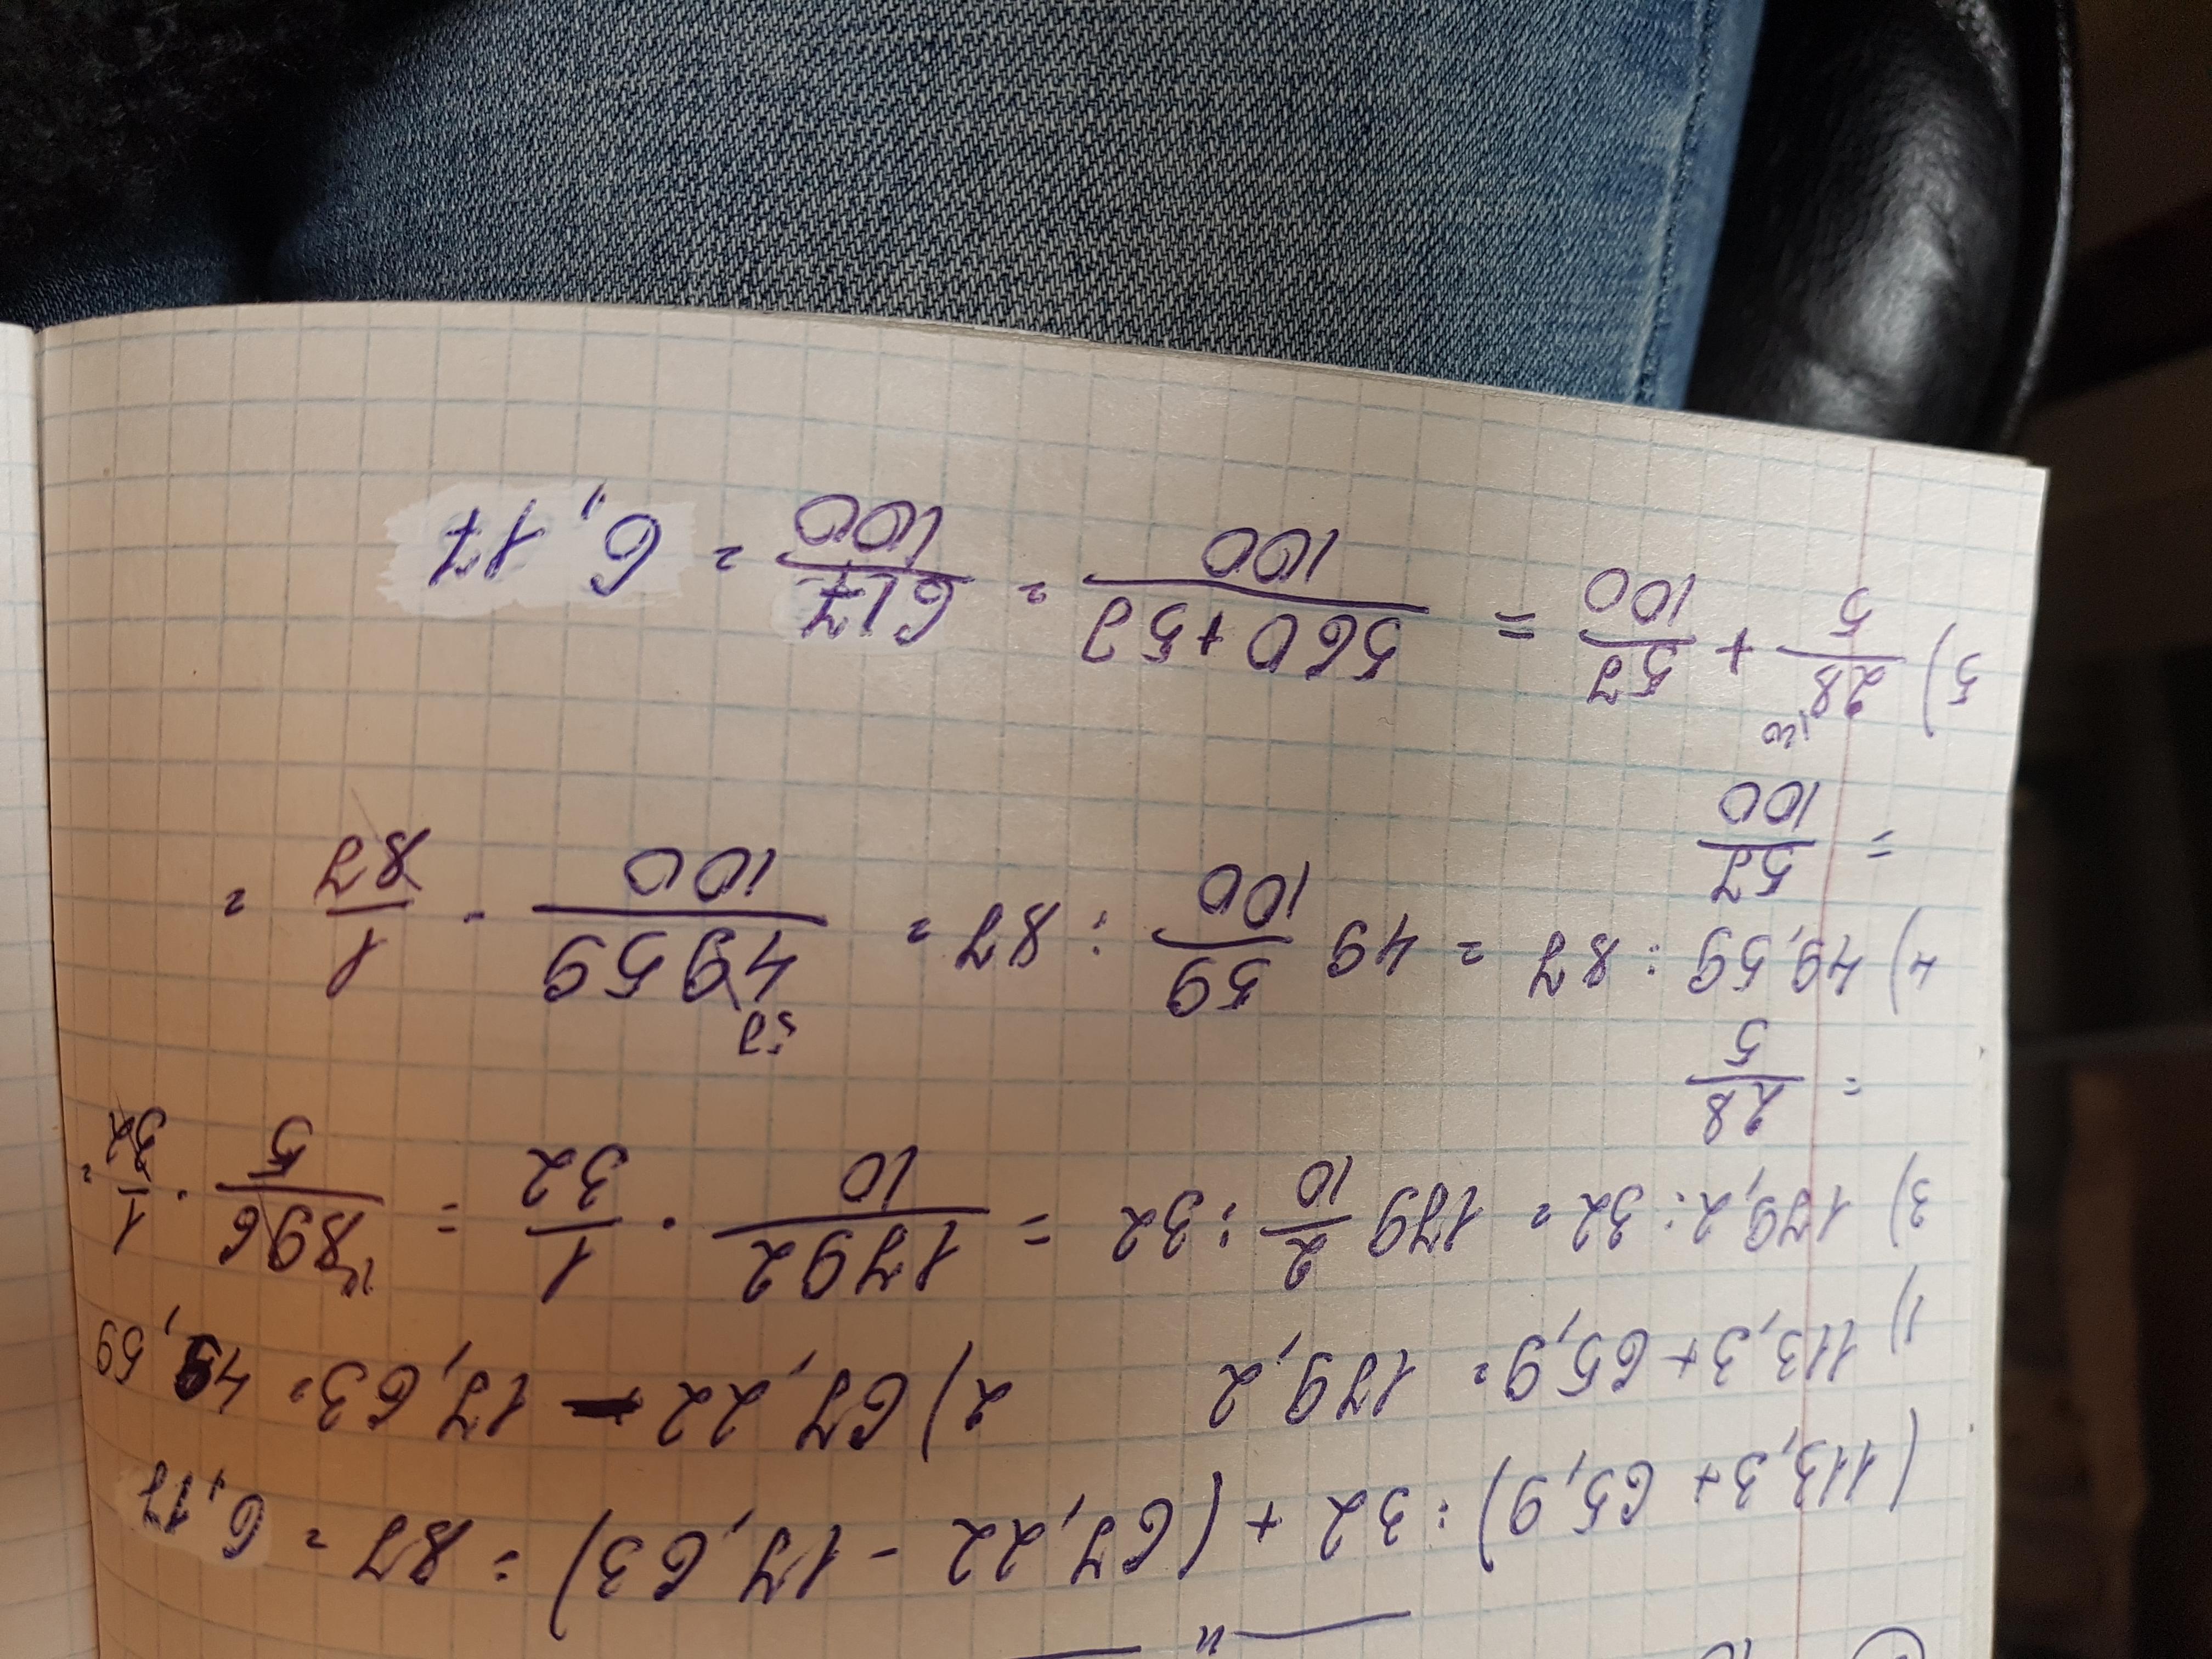 (113,3 + 65,9) : 32 + (67,22 - 17,63) : 87 = 6,17
1) 113,3 + 65,9 = 179,2 2) 67,22 - 17,63 = 49,59
3) 179,2 : 32 = 179 2/10 : 32 = 1792/10 · 1/32 = 896/5 · 1/32 =
= 28/5
57
4) 49,59 : 87 = 49 59/100 : 87 = 4959/100 · 1/87 =
= 57/100
5) 28/5 + 57/100 = 560+57/100 = 617/100 = 6,17